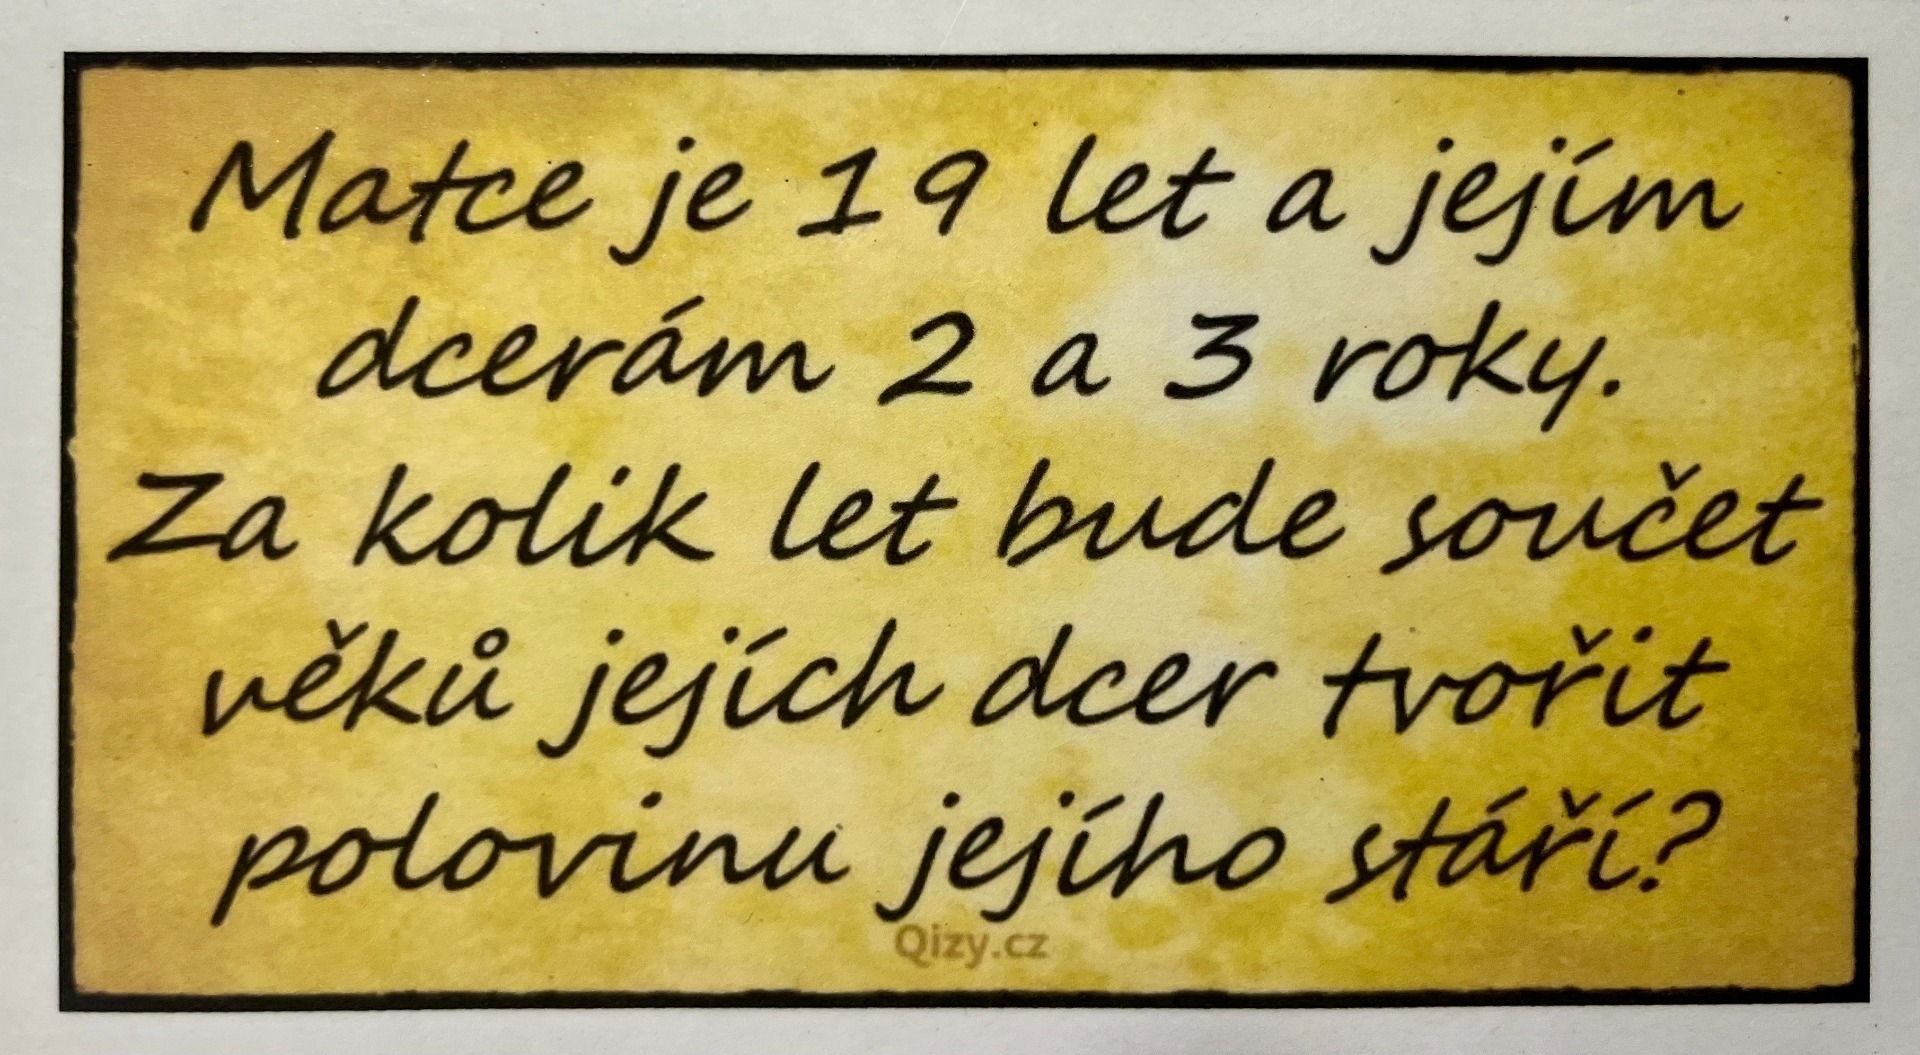 Matce je 19 let a jejím
dcerám 2 a 3 roky.
Za kolik let bude součet
věků jejích dcer tvořit
polovinu jejího stáří?
Qizy.cz